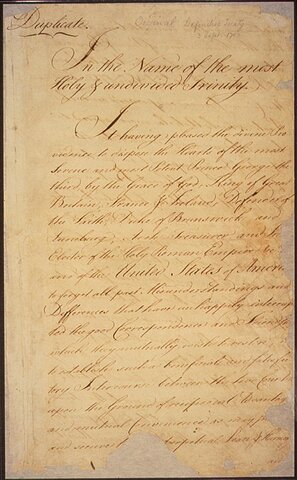 Duplicate.
Original Definitive Treaty
3 Sept. 1783
In the Name of the most
Holy & undivided Trinity.
It having pleased the divine Pro
vidence to dispose the Hearts of the most
Serene and most Potent Prince George the
third, by the Grace of God, King of Great
Britain, France & Ireland, Defender of
the Faith, Duke of Brunswick and
Lunebourg, Arch Treasurer, and Prince
Elector of the Holy Roman Empire &c
and of the United States of America
to forget all past Misunderstandings and
Differences that have unhappily interrup
ted the good Correspondence and Friendship
which they mutually wish to restore;
to establish such a beneficial and satisfac
tory Intercourse between the two Countries
upon the Ground of reciprocal Advantages
and mutual Convenience as may
and secure perpetual Peace & Harmony